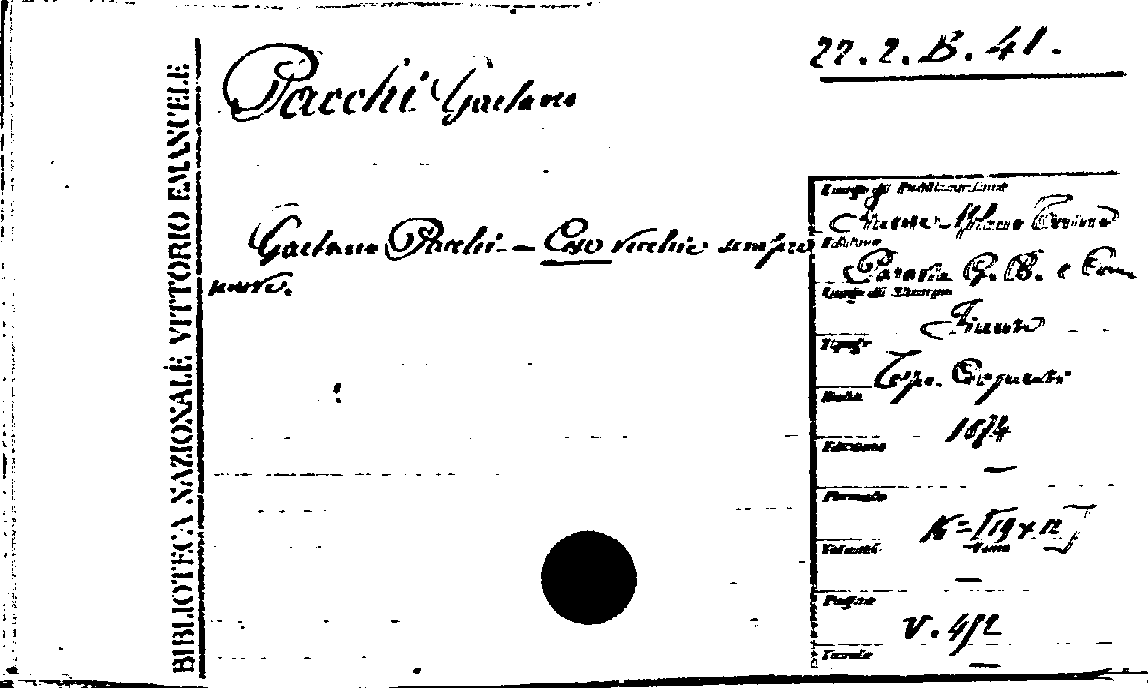 BIBLIOTECA NAZIONALE VITTORIO EMANUELE
22.2.B.41.
Pacchi Gaetano
Gaetano Pacchi - Caso vecchio sempre
nuovo.
Luogo di Pubblicazione
Milano Torino
Editore
Paravia G. B. e Com
Luogo di Stampa
Firenze
Tipogr
Tip.
Data
1874
Edizione
—
Formato
16=[19x12]
Volumi
Tomo
—
Pagine
V. 472
Tavole
—